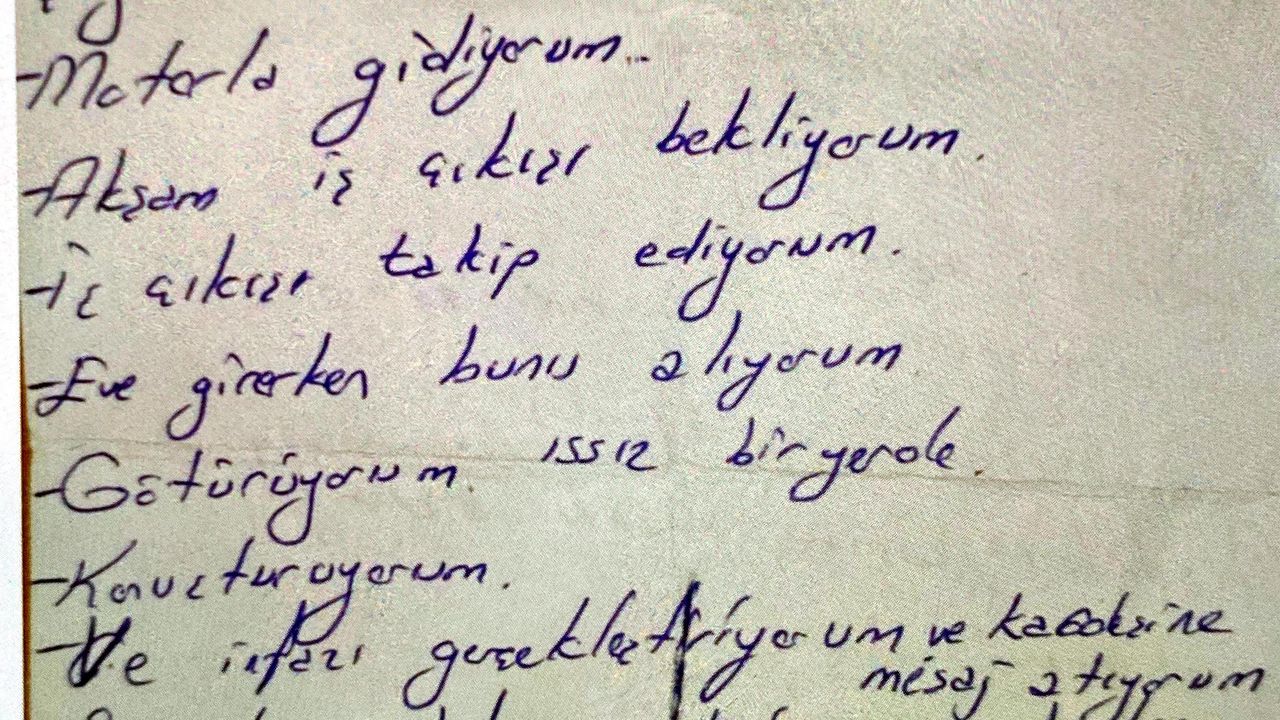 -Motorla gidiyorum...
-Akşam iş çıkışı bekliyorum.
-İş çıkışı takip ediyorum.
-Eve girerken bunu alıyorum
-Götürüyorum. ıssız bir yerde.
-Konuşturuyorum.
-Ve infazı gerçekleştiriyorum ve
mesaj atıyorum